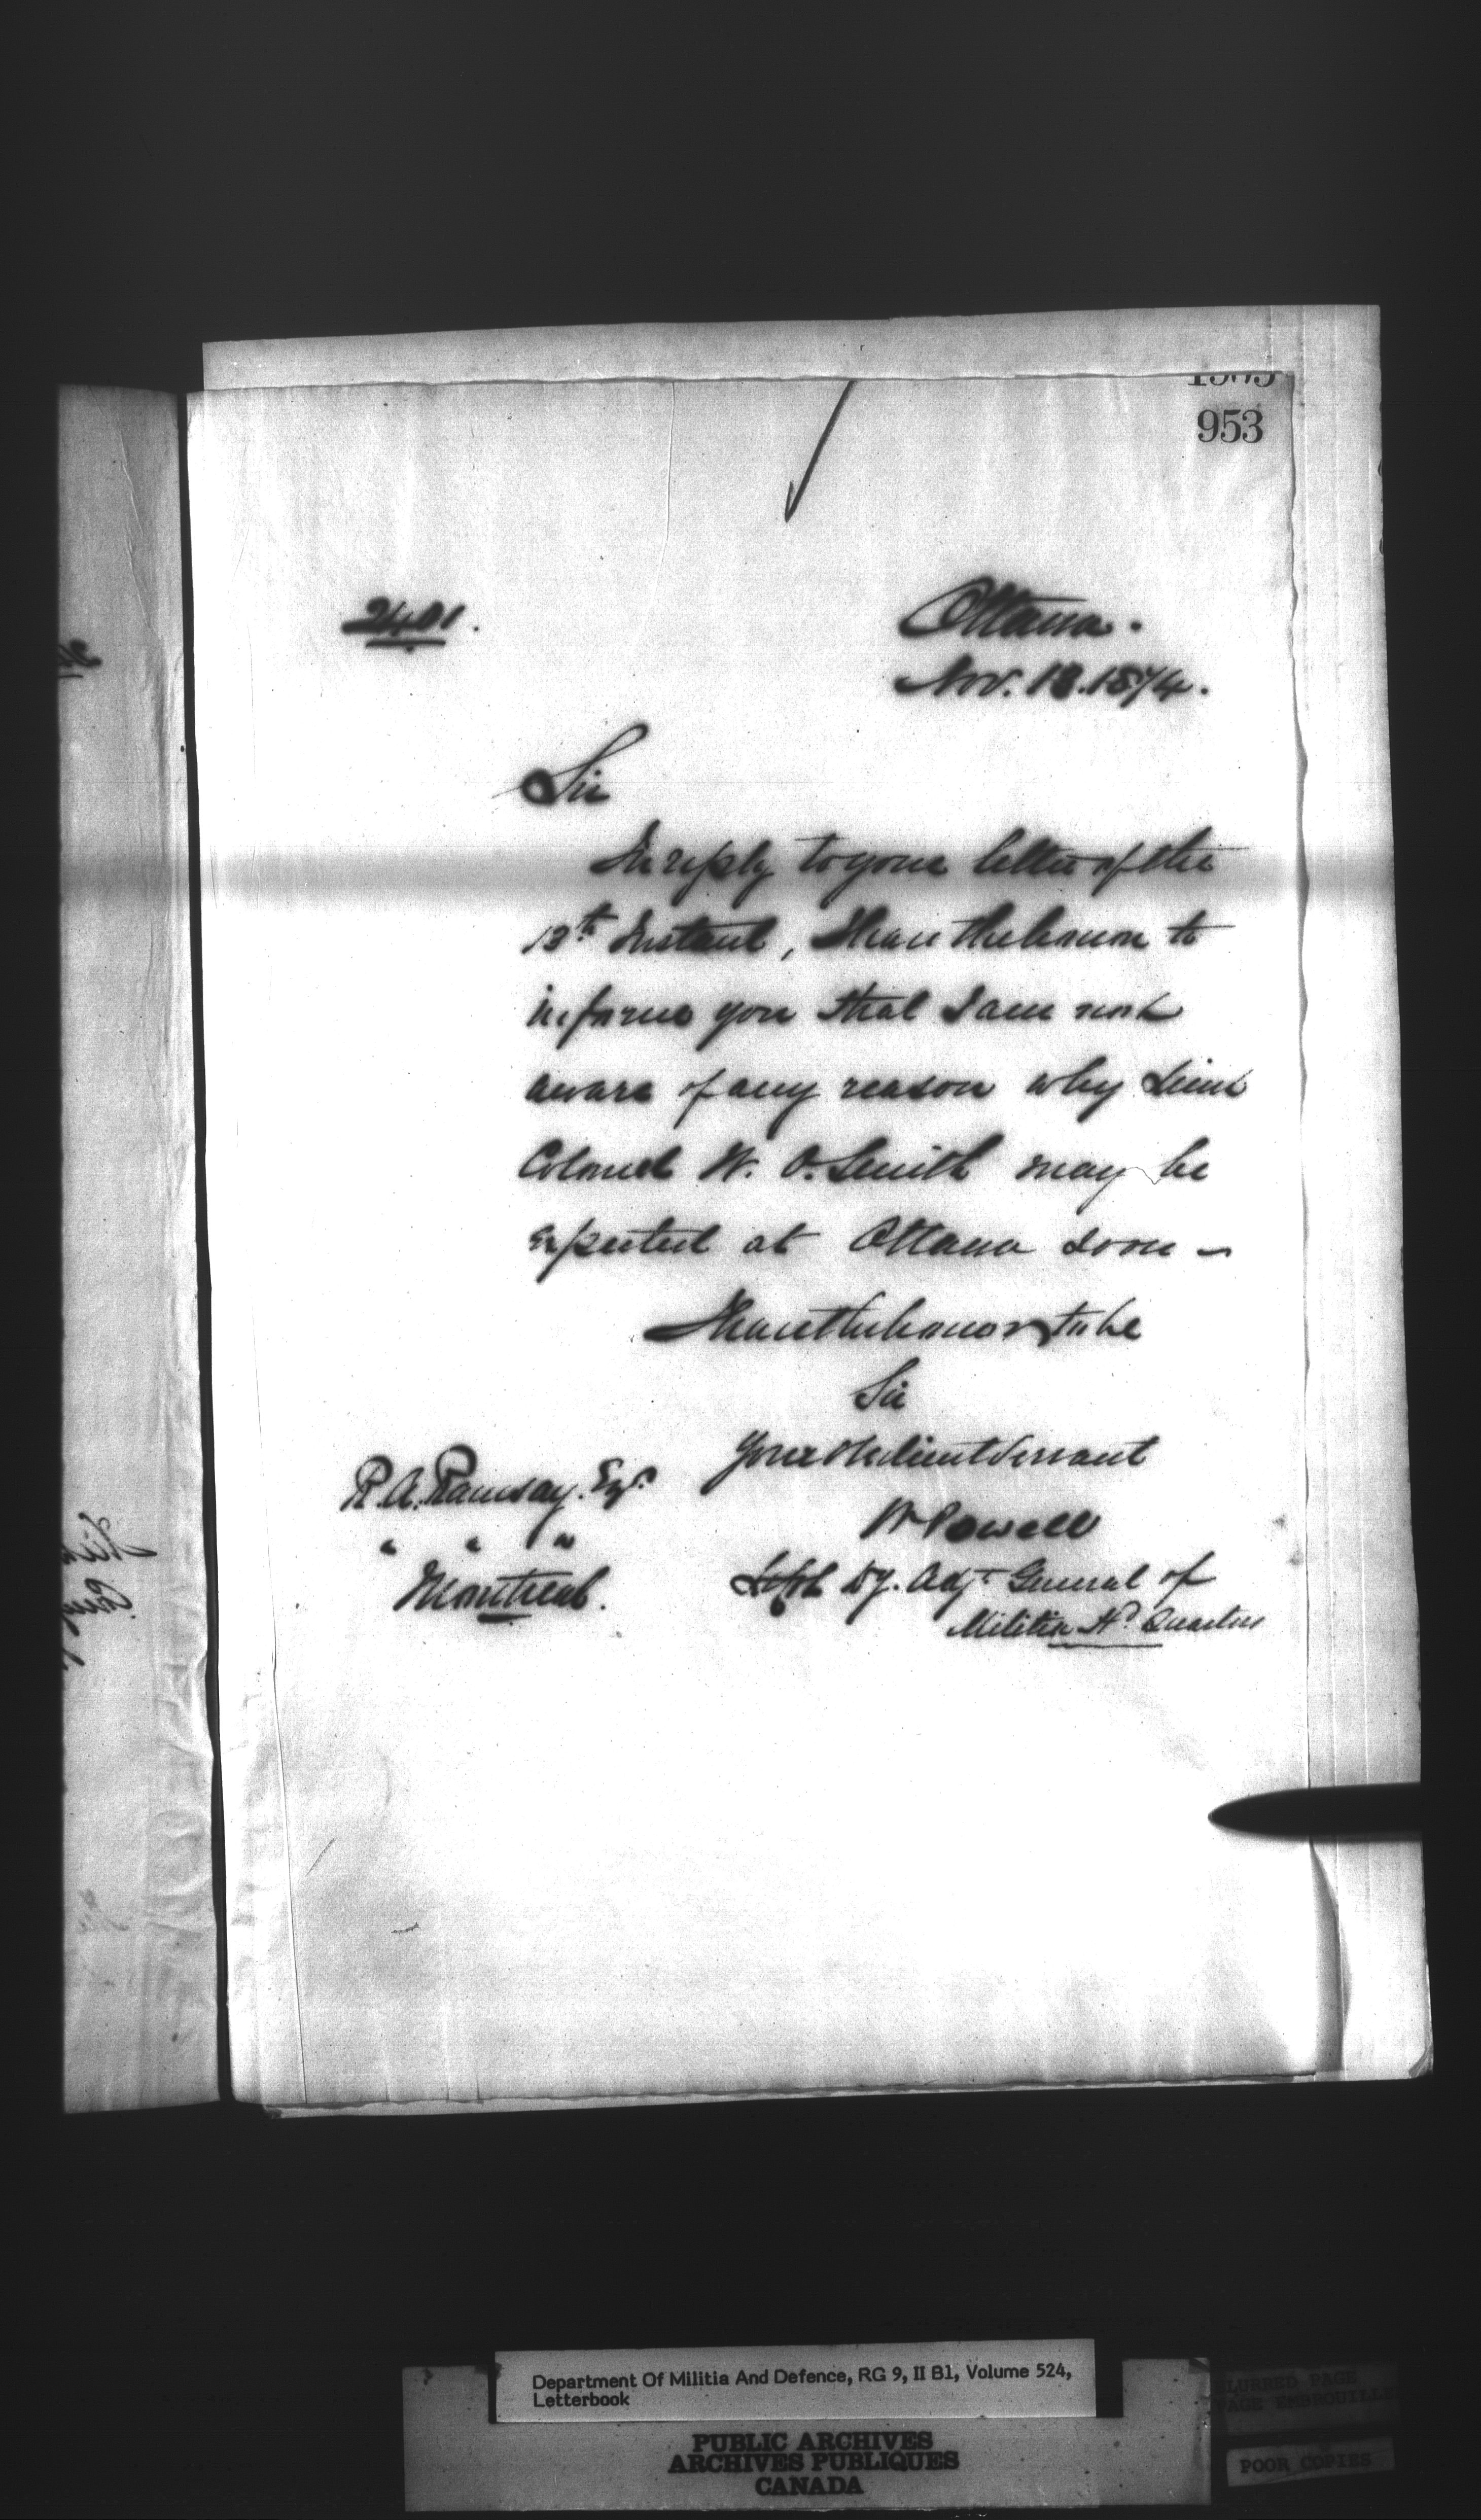 953
2401.
Ottawa.
Nov. 18. 1874.
Sir
In reply to your letter of the
13th Instant, I have the honor to
inform you that I am not
aware of any reason why Lieut
Colonel W. O. Smith may be
expected at Ottawa soon –
I have the honor to be
Sir
Your obedient servant
W Powell
Lt Col Dy. Adjt General of
Militia Hd Quarters
R. A. Ramsay. Esqr
" " "
Montreal.
Department Of Militia And Defence, RG 9, II B1, Volume 524,
Letterbook
PUBLIC ARCHIVES
ARCHIVES PUBLIQUES
CANADA
BLURRED PAGE
PAGE EMBROUILLE
POOR COPIES